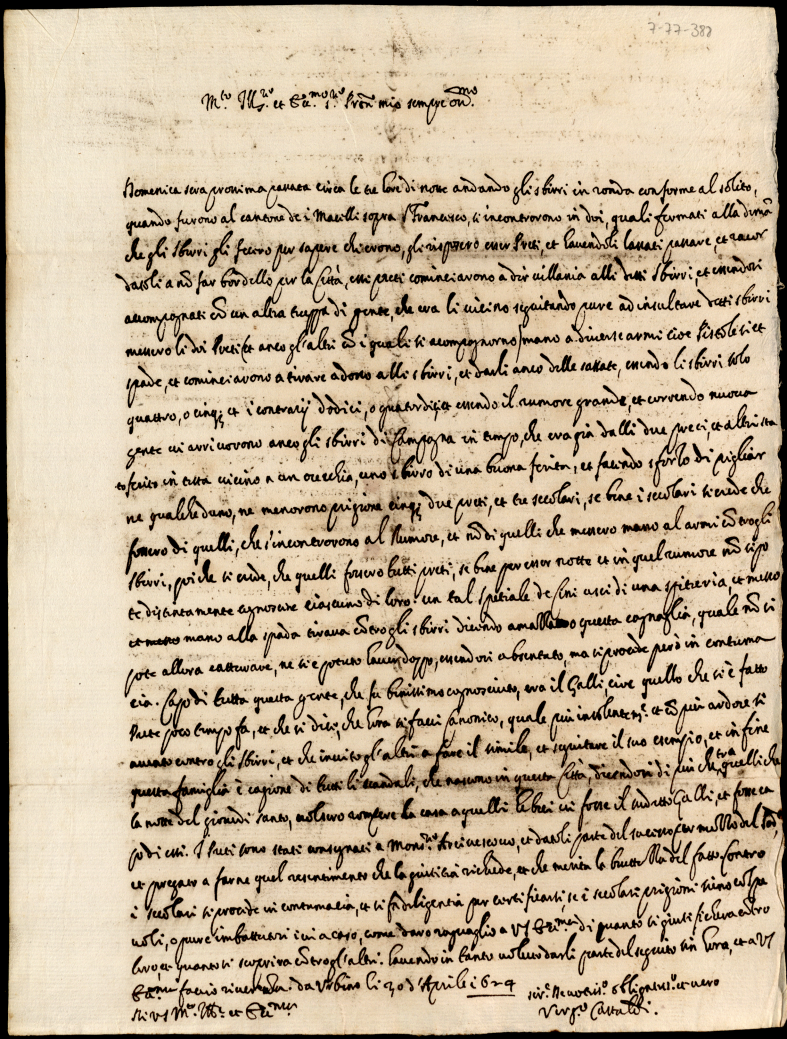 7-77-388
M.to Ill.re et Ecc.mo s.re P'ron mio sempre oss.mo
Domenica sera prossima passata circa le tre hore di notte andando gli sbirri in ronda conforme al solito,
quando furono al cantone de i Macelli sopra S. Francesco, si incontrorono in doi, quali fermati alla dimā
che gli sbirri gli fecero per sapere chi erono, gli risposero esser Preti, et havendoli lassati passare, et
datoli a nō far bordello per la Città, essi preti cominciarono a dir villania alli detti sbirri, et essendosi
accompagnati cō un altra truppa di gente, che era li vicino seguitando pure ad insultare detti sbirri
messero li doi Preti et anco gl'altri cō i quali si acompagnorno mano a diverse armi cioè Pistolesi et
spade, et cominciavono a tirare adosso alli sbirri, et darli anco delle sassate, essendo li sbirri solo
quattro, o cinq; et i contrarij dodici, o quatordici, et essendo il rumore grande, et correndo nuova
gente vi arrivorono anco gli sbirri di Campagna in tempo, che era già dalli due preti, et altri sta
to ferito in testa vicino a un orecchia, uno sbirro di una buona ferita, et facendo sforzo di pigliar
ne qualcheduno, ne menorono prigione cinq; due preti, et tre secolari, se bene i secolari si crede che
fossero di quelli, che s'incontrorono al rumore, et nō di quelli che messero mano al armi cōtro gli
sbirri, poiche si crede, che quelli fossero tutti preti, se bene per esser notte et in quel rumore nō si po
te distintamente cognoscere ciascuno di loro. un tal spetiale de Cini uscì di una spetieria, et messo
mano alla spada tirava cōtro gli sbirri dicendo questa cagnaglia, quale nō si
pote allora catturare, ne si è potuto havere doppo, essendosi absentato, ma si procede però in contuma
cia. Capo di tutta questa gente, che fu benissimo cognosciuto, era il Galli, cioè quello che si è fatto
Prete poco tempo fa, et che si dice, che hora si facci Canonico, quale più insolentem.te et cō più ardore si
avento contro gli sbirri, et che incitò gl'altri a fare il simile, et seguitare il suo esempio, et in fine
questa famiglia è cagione di tutti li scandali, che nascono in questa Città, dicendosi di più che tra quelli che
la notte del giovedì santo, volsero rompere la casa a quelli hebrei vi fosse il sudetto Galli, et fosse ca
po di essi. I Preti sono stati consegnati a Mons.re Arcivescovo, et datoli parte del successo per mezzo del
et pregato a farne quel resentimento che la giustitia richiede, et che merita la bruttezza del fatto. Contro
i secolari si procede in contumacia, et si fà diligentia per certificarsi se i secolari prigioni sieno colpe
voli, o pure imbattutisi ivi a caso, come darò raguaglio a VS Ecc.ma di quanto si giustificherà cōtro
loro et quanto si scoprirà cōtro gl'altri. havendo in tanto voluto darli parte del seguito sin hora, et a VS
Ecc.ma faccio riverenza. da Urbino li 30 d'Aprile 1624
Di VS M.to Ill.re et Ecc.ma
ser.re Devotiss.o obligatiss.o et vero
Verg.o Cattald.